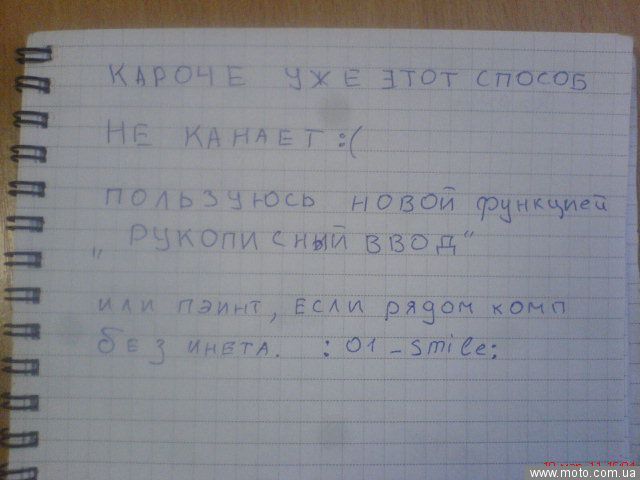 КАРОЧЕ УЖЕ ЭТОТ СПОСОБ
НЕ КАНАЕТ :(
ПОЛЬЗУЮСЬ НОВОЙ функцией
„РУКОПИСНЫЙ ВВОД"
или пэинт, если рядом комп
без инета. :01-smile:
www.moto.com.ua